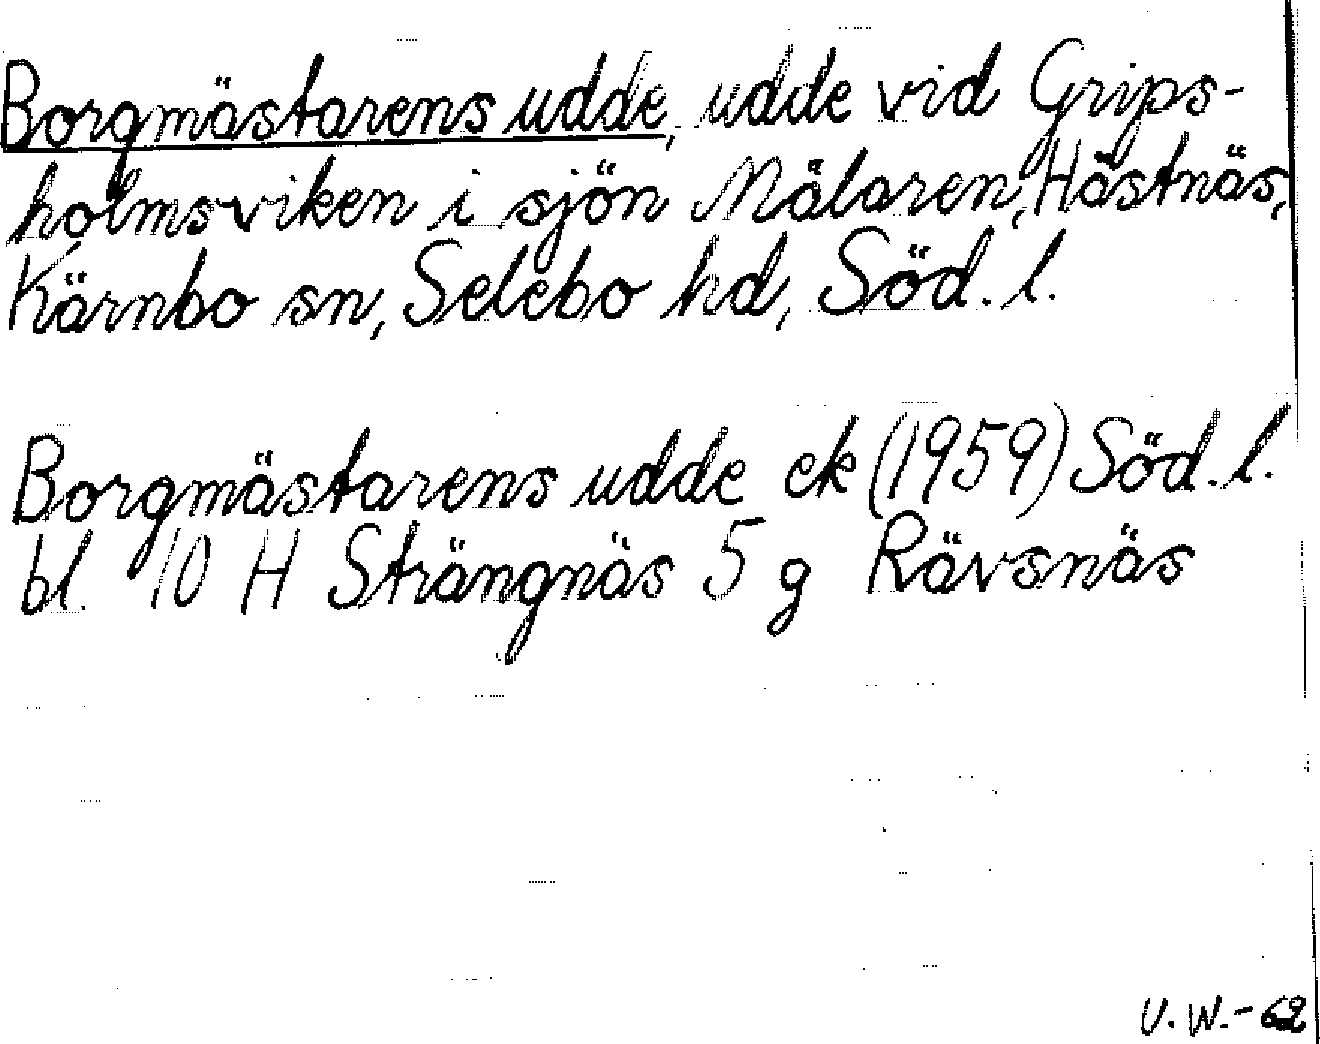 Borgmästarens udde, udde vid Grips-
holmsviken i sjön Mälaren, Hästnäs,
Kärnbo sn, Selebo hd, Söd. l.
Borgmästarens udde ek (1959) Söd. l.
bl. 10 H Strängnäs 5 g Rävsnäs
U. W. - 62